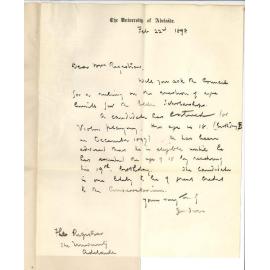 The University of Adelaide.
Feb 22nd 1898
Dear Mr Registrar,
Will you ask the Council
for a ruling on the question of age
limits for the Elder Scholarships.
A candidate has entered for
Violin playing. His age is 18 (birthday
in December 1897). He has been
advised that he is eligible until he
has exceeded the age of 18 by reaching
his 19th birthday. The candidate
is one likely to be of great credit
to the Conservatorium.
Yours very truly
The Registrar
The University
Adelaide